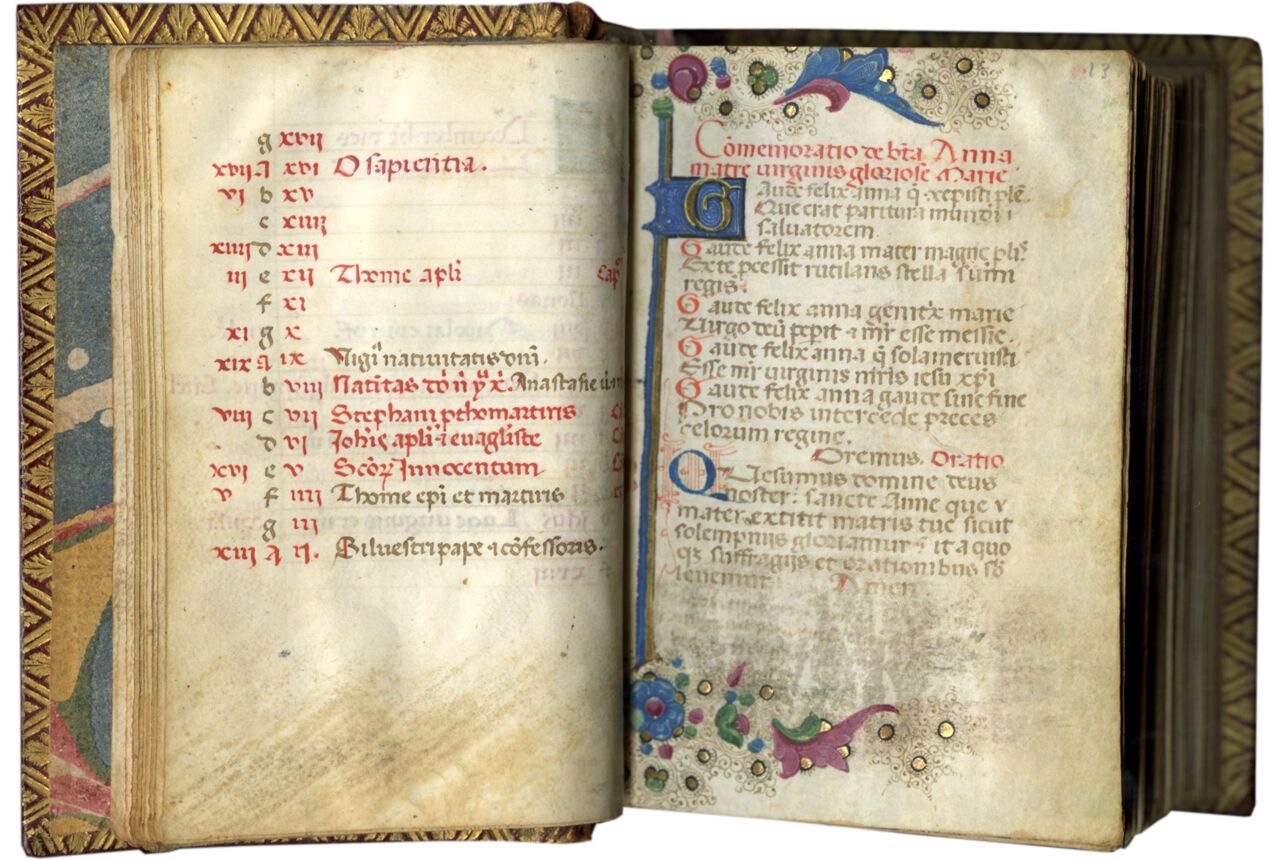 g xvii
xvii A xvi O sapientia.
vi b xv
c xiiij
xiiij d xiii
iii e xii Thome apl'i
f xi
xi g x
xix A ix Vigi' nativitatis dni.
b viii Anastasie
viii c vii Stephani pthomartiris
d vi Joh'is apl'i
xvi e v Innocentum
v f iiii Thome epi et martiris
g iii
xiii A ii. Silvestri pape confessoris.
13
Comemoratio de bta Anna
matre virginis gloriose Marie
Gaude felix anna q
Que erat paritura mundi
salvatorem.
Gaude felix anna mater magne
rutilans stella sumi
regis.
Gaude felix anna genitx marie
Virgo deu pepit mr esse messie.
Gaude felix anna q sola meruisti
Esse mr virginis mris iesu xpi
Gaude felix anna gaude sine fine
Pro nobis intercede preces
celorum regine.
Oremus. Oratio
Quesumus domine deus
noster: sancte Anne que
mater extitit matris tue sicut
solempniis gloriamur ita quo
suffragiis et orationibus
Amen